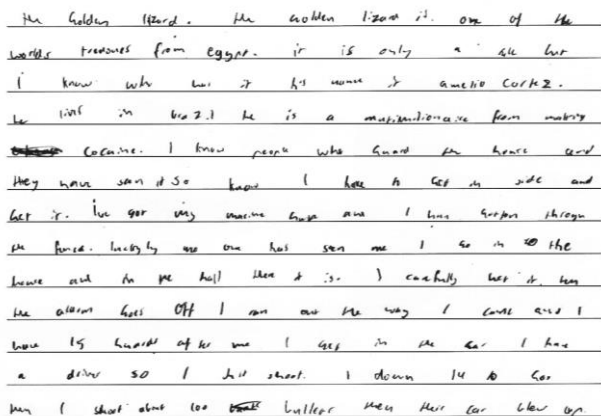 the Golden lizard. the Golden lizard is. one of the
worlds treasures from egypt. it is only a but
i know who has it his name is amelio cortez.
he lives in brazil he is a multimillionaire from making
cocaine. I know people who guard the house and
they have seen it so know I have to get in side and
get it. Ive got my machine and I have gotten through
the fence. luckyly no one has seen me I go in to the
house and in the hall there it is. I carefully get it. then
the alarm goes Off I ran out the way I came and I
have 15 guards after me I get in the car I have
a driver so I just shoot. 1 down 14 to go
then I shoot about 100 bullets then their car blew up.